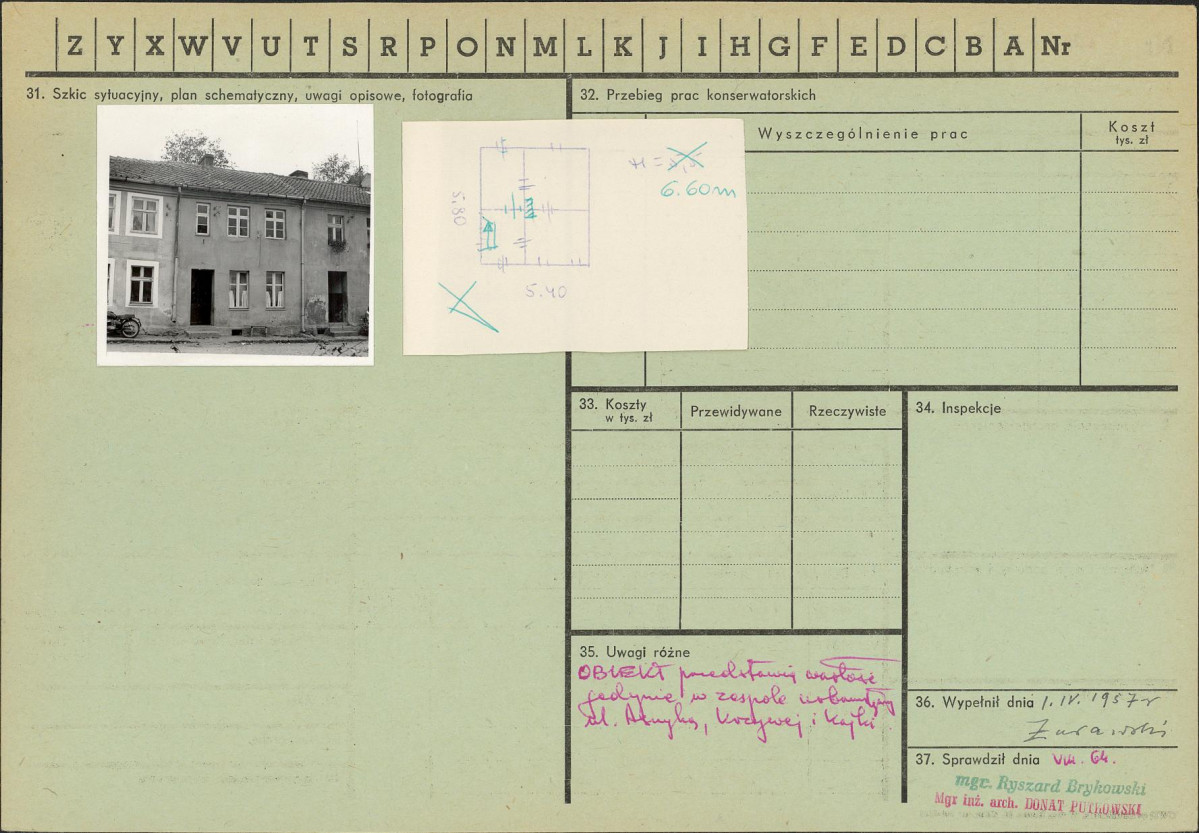 Z Y X W V U T S R P O N M L K J I H G F E D C B A Nr
31. Szkic sytuacyjny, plan schematyczny, uwagi opisowe, fotografia
5.80
5.40
H =
6.60m
32. Przebieg prac konserwatorskich
Wyszczególnienie prac
Koszt
tys. zł
33. Koszty
w tys. zł
Przewidywane
Rzeczywiste
34. Inspekcje
35. Uwagi różne
OBIEKT przedstawia wartość
jedynie w zespole
ul. Asnyka, Krzywej i Kajki
36. Wypełnił dnia 1. IV. 1957 r
Żurawski
37. Sprawdził dnia VIII. 64.
mgr. Ryszard Brykowski
Mgr inż. arch. DONAT PUTKOWSKI